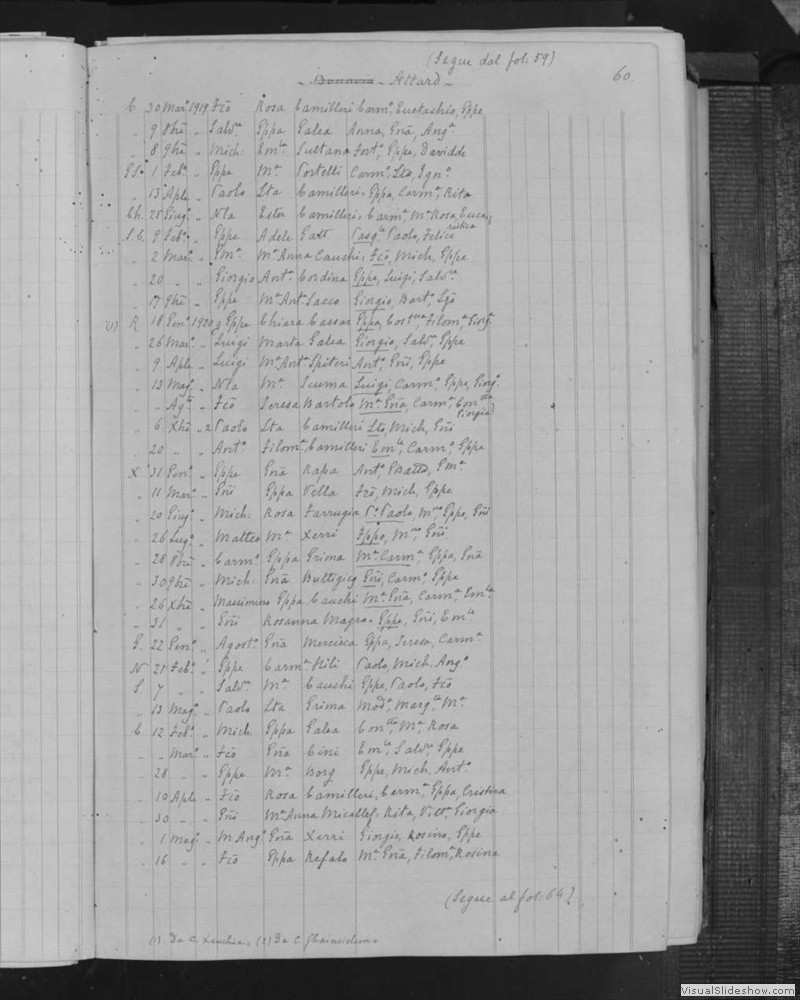 (Segue dal fol: 59)
60.
Bonavia - Attard -
C 30 Mar. 1919 Fco Rosa Camilleri Carmo, Eustachio, Eppe
" 9 8bre " Salvre Eppa Galea Anna, Gna, Anga
" 8 9bre " Mich: Emla Sultana Forto, Eppe, Davidde
1 Febo " Eppe Ma Portelli Carmo, Lto, Igno
" 13 Aple " Paolo Lta Camilleri Eppa, Carma, Rita
Ch. 25 Giugo " Nla Ester Camilleri Carma, Ma Rosa, Euca=
ristica
S.C. 9 Febo " Eppe Adele Gatt Pasqle, Paolo, Felice
" 2 Mar. " Ema Ma Anna Cauchi Fco, Mich, Eppe
" 20 " " Giorgio Anta Cordina Eppe, Luigi, Salvre
" 17 9bre " Eppe Ma Anta Sacco Giorgio, Barto, Lzo
(1) R 18 Geno 1920 Eppe Chiara Caesar Eppa, Filoma, Giorga
" 26 Mar. " Luigi Marta Galea Giorgio, Salvre, Eppe
" 9 Aple " Luigi Ma Anta Spiteri Anto, Gni, Eppe
" 13 Mago " Nla Ma Scuma Luigi, Carmo, Eppe, Giorgo
" Agto " Fco Teresa Bartolo Ma Gna, Carma, Conctta
Giorgia
" 6 Xbre " 2 Paolo Lta Camilleri Lto, Mich, Gni
" 20 " " Anto Filoma Camilleri Emla, Carmo, Eppe
X 31 Geno " Eppe Gna Rapa Anto, Ema
" 11 Mar. " Gni Eppa Vella Fco, Mich, Eppe
" 20 Giugo " Mich: Rosa Farrugia Po Paolo, Eppe, Gni
" 26 Lugo " Matteo Ma Xerri Eppe, Gni
" 28 8bre " Carmo Eppa Grima Ma Carma, Eppa, Gna
" 30 9bre " Mich: Gna Buttigieg Gni, Carmo, Eppe
" 26 Xbre " Massimino Eppa Cauchi Ma Gna, Carma, Emla
" 31 " " Gni Rosanna Magro Eppe, Gni, Emle
G. 22 Geno " Agosto Gna Mercieca Eppa, Teresa, Carma
N 21 Febo " Eppe Carma Hili Paolo, Mich, Ango
S. 7 " " Salvre Ma Cauchi Eppe, Paolo, Fco
" 13 Mago " Paolo Lta Grima Moda, Margta, Ma
C 12 Febo " Mich Eppa Galea Conctta, Ma, Rosa
" " Mar. " Fco Gna Cini Emle, Salvre, Eppe
" 28 " " Eppe Ma Borg Eppe, Mich, Anto
" 10 Aple " Fco Rosa Camilleri Carma, Eppa, Cristina
" 30 " " Gni Ma Anna Micallef Rita, Vitta, Giorgia
" 1 Mago " M. Ango Gna Xerri Giorgio, Rosino, Eppe
" 16 " " Fco Eppa Refalo Ma Gna, Filoma, Rosina
(Segue al fol: 64)
(1) Da C. Xeuchia = (2) Da C. Ghainsielem =
VisualSlideshow.com